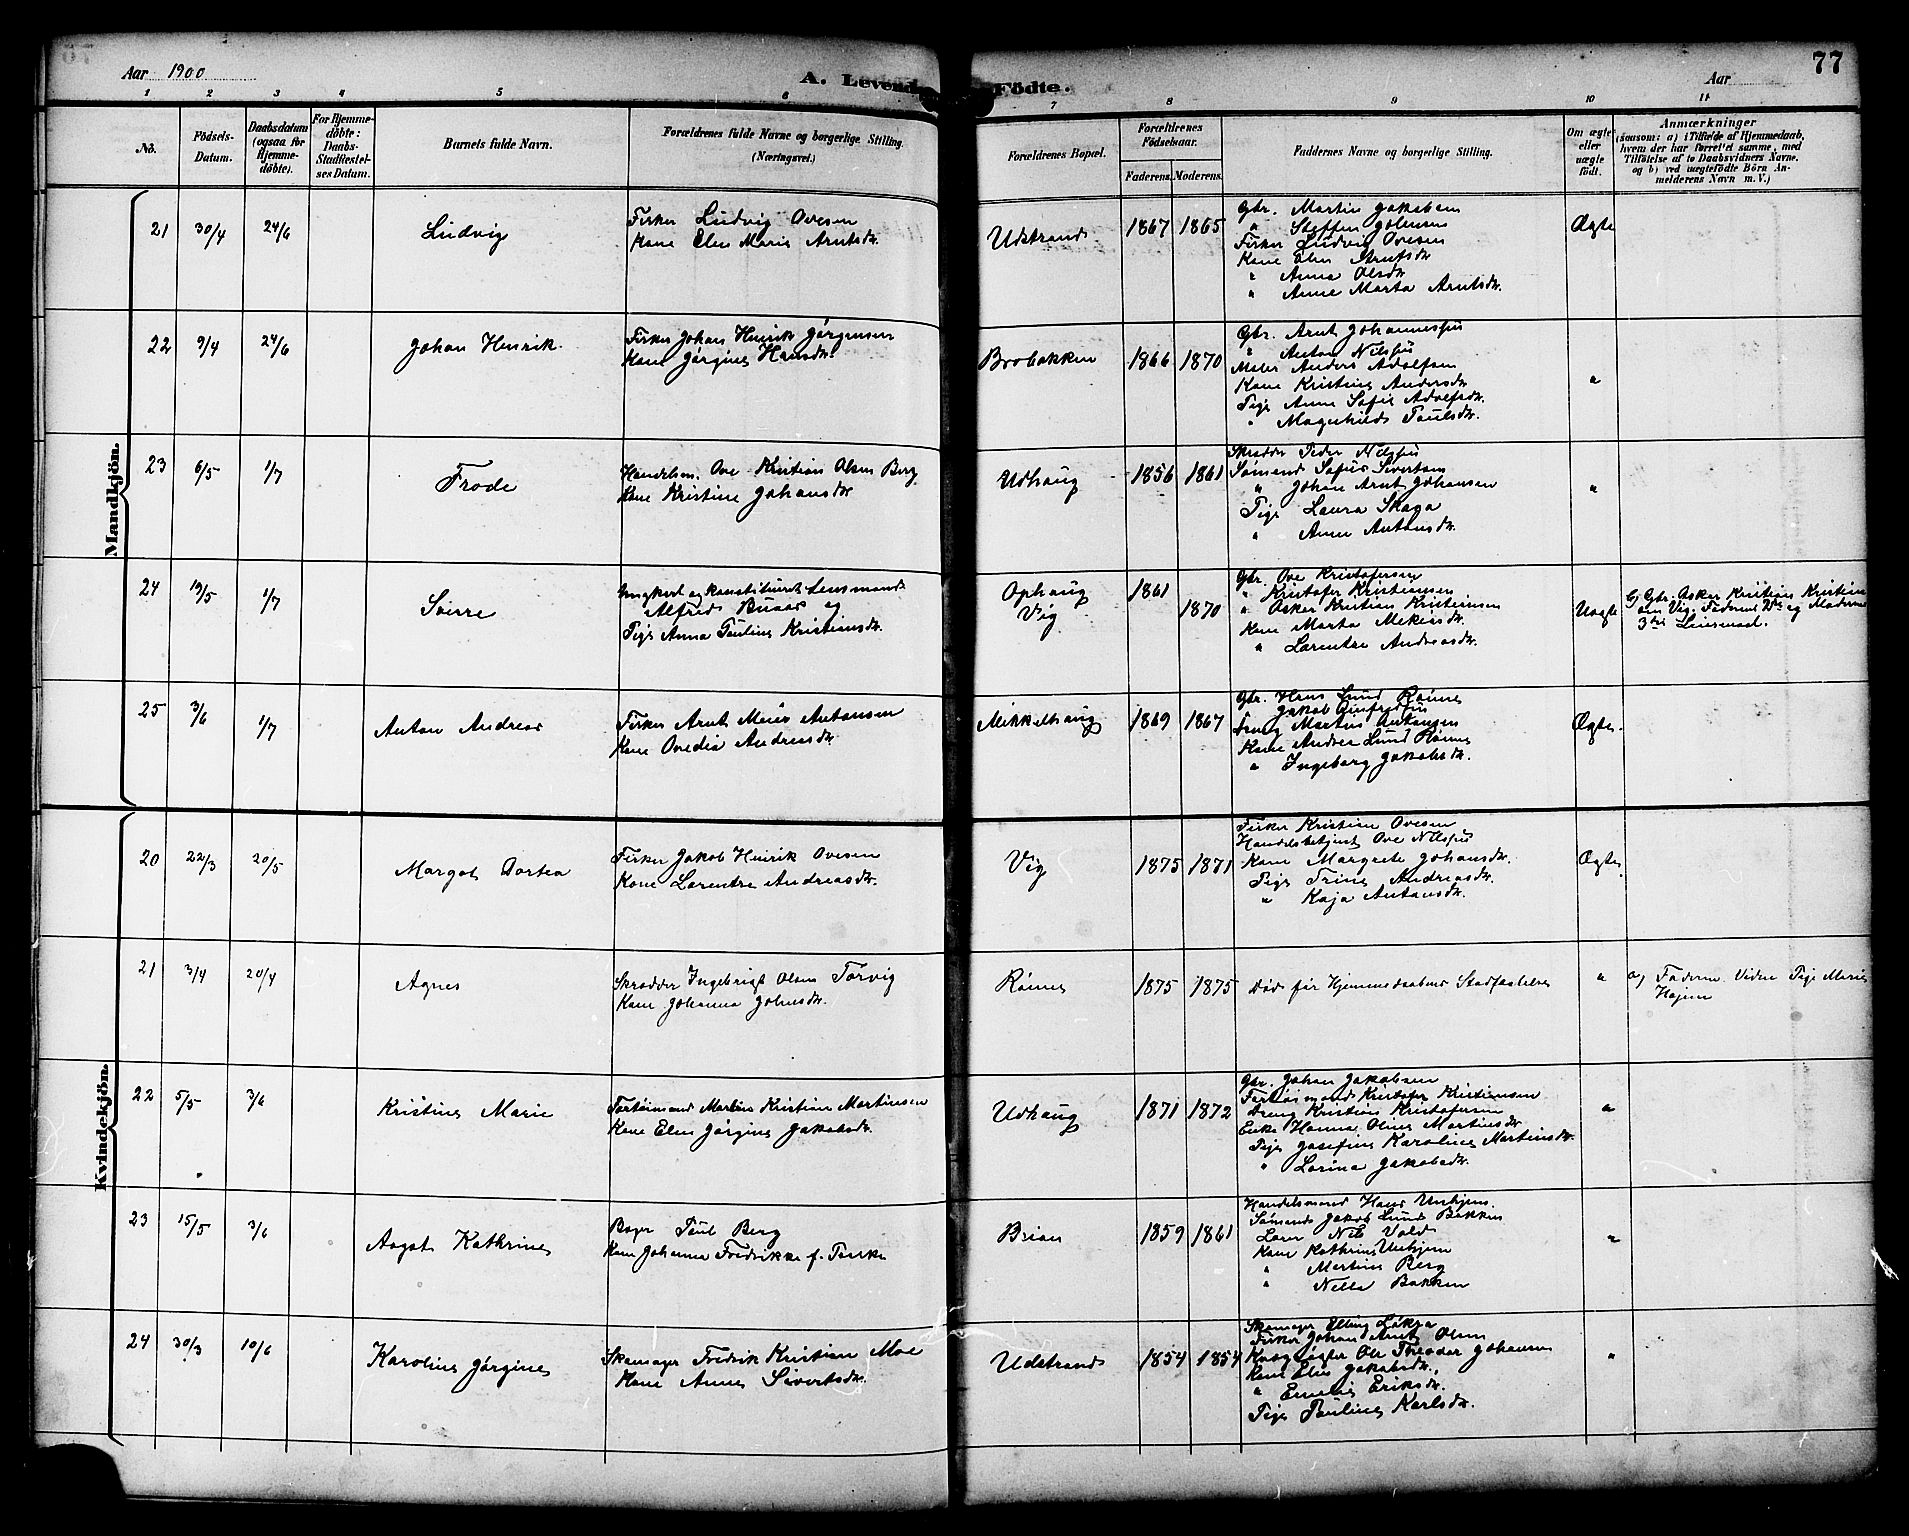 Aar 1900
A. Levende Födte.
Aar
77
1 2 3 4 5 6 7 8 9 10 11
No.
Födsels-Datum.
Daabsdatum (ogsaa for Hjemme-döbte).
For Hjemme-döbte: Daabs-Stadfæstel-ses Datum.
Barnets fulde Navn.
Forældrenes fulde Navne og borgerlige Stilling.
(Næringsvei.)
Forældrenes Bopæl.
Forældrenes Födselsaar.
Faderens. Moderens.
Faddernes Navne og borgerlige Stilling.
Om ægte eller uægte födt.
Anmærkninger
(saasom: a) i Tilfælde af Hjemmedaab,
hvem der har forrettet samme, med
Tilföielse af to Daabsvidners Navne.
og b) ved uægtefödte Börn An-
melderens Navn m. V.)
Mandkjön.
21 30/4 24/6 Ludvig
Fisker Ludvig Ovesen
Kone Elen Marie Arntsdr.
Udstrand 1867 1865
Gbr. Martin Jakobsen
" Steffen Johnsen
Fisker Ludvig Ovesen
Kone Elen Arntsdr
" Anna Olsdr
" Anne Marta Arntsdr.
Ægte
22 9/4 24/6 Johan Henrik
Fisker Johan Henrik Jörgensen
Kone Jörgine Hansdr.
Brobakken 1866 1870
Gbr. Arnt Johannessen
" Anton Nilsen
Maler Anders Adolfsen
Kone Kristine Andersdr
Pige Anne Sofie Adolfsdr.
" Magnhild Paulsdr.
"
23 6/5 1/7 Frode
Handelsm. Ove Kristian Olsen Berg
Kone Kristine Johansdr
Udhaug 1856 1861
Skrædder Peder Nilsen
Sömand Sofus Sivertsen
" Johan Arnt Johansen
Pige Laura Skaga
" Anna Antonsdr.
"
24 19/5 1/7 Sverre
Ungkarl og konstitueret Lensmand
Alfred Buaas og
Pige Anna Pauline Kristiansdr.
Ophaug 1861
Vig 1870
Gbr. Ove Kristofersen
" Kristofer Kristiansen
" Osker Kristian Kristiansen
Kone Marta Mekelsdr.
" Lorentze Andreasdr.
Uægte
b) Gbr. Osker Kristian Kristian
sen Vig. Faderens 2det og Moderens
3die Leiermaal.
25 3/6 1/7 Anton Andreas
Fisker Arnt Meier Antonsen
Kone Ovedia Andreasdr.
Mikkelhaug 1869 1867
Gbr. Hans Lund Rönne
" Jakob
Dreng Martin Antonsen
Kone Andrea Lund Rönne
" Ingeborg Jakobsdr.
Ægte.
Kvindekjön.
20 22/3 20/5 Margot Dortea
Fisker Jakob Henrik Ovesen
Kone Lorentze Andreasdr.
Vig 1875 1871
Fisker Kristian Ovesen
Handelsbetjent Ove Nilsen
Kone Margrete Johansdr.
Pige Trine Andreasdr.
" Kaja Antonsdr.
Ægte
21 3/4 20/4 Agnes
Skrædder Ingebrigt Olsen Torvig
Kone Johanna Johnsdr.
Rönne 1875 1875
Död för Hjemmedaabens Stadfæstelse
"
a) Faderen. Vidne Pige Marie
Hojem
22 5/5 3/6 Kristine Marie
Fortöimand Martin Kristian Martinsen
Kone Elen Jörgine Jakobsdr.
Udhaug 1871 1872
Gbr. Johan Jakobsen
Fortöimand Kristofer Kristiansen
Dreng Kristian Kristofersen
Enke Hanna Oline Martinsdr
Pige Josefine Karoline Martinsdr.
" Lorina Jakobsdr.
"
23 15/5 3/6 Aagot Kathrine
Bager Paul Berg
Kone Johanna Fredrikke f. Parke
Brian 1859 1861
Handelsmand Hans Uehjem.
Sömand Jakob Lund Bakken
Lærer Nils Vold
Kone Kathrine Uehjem
" Martine Berg
" Nella Bakken
"
24 30/3 10/6 Karoline Jörgine
Skomager Fredrik Kristian Moe
Kone Anne Sivertsdr.
Udstrand 1854 1854
Skomager Elling Löksa
Fisker Johan Arnt Olsen
Ole Teodor Johansen
Kone Elen Jakobsdr.
" Emelie Eriksdr.
Pige Pauline Karlsdr.
"